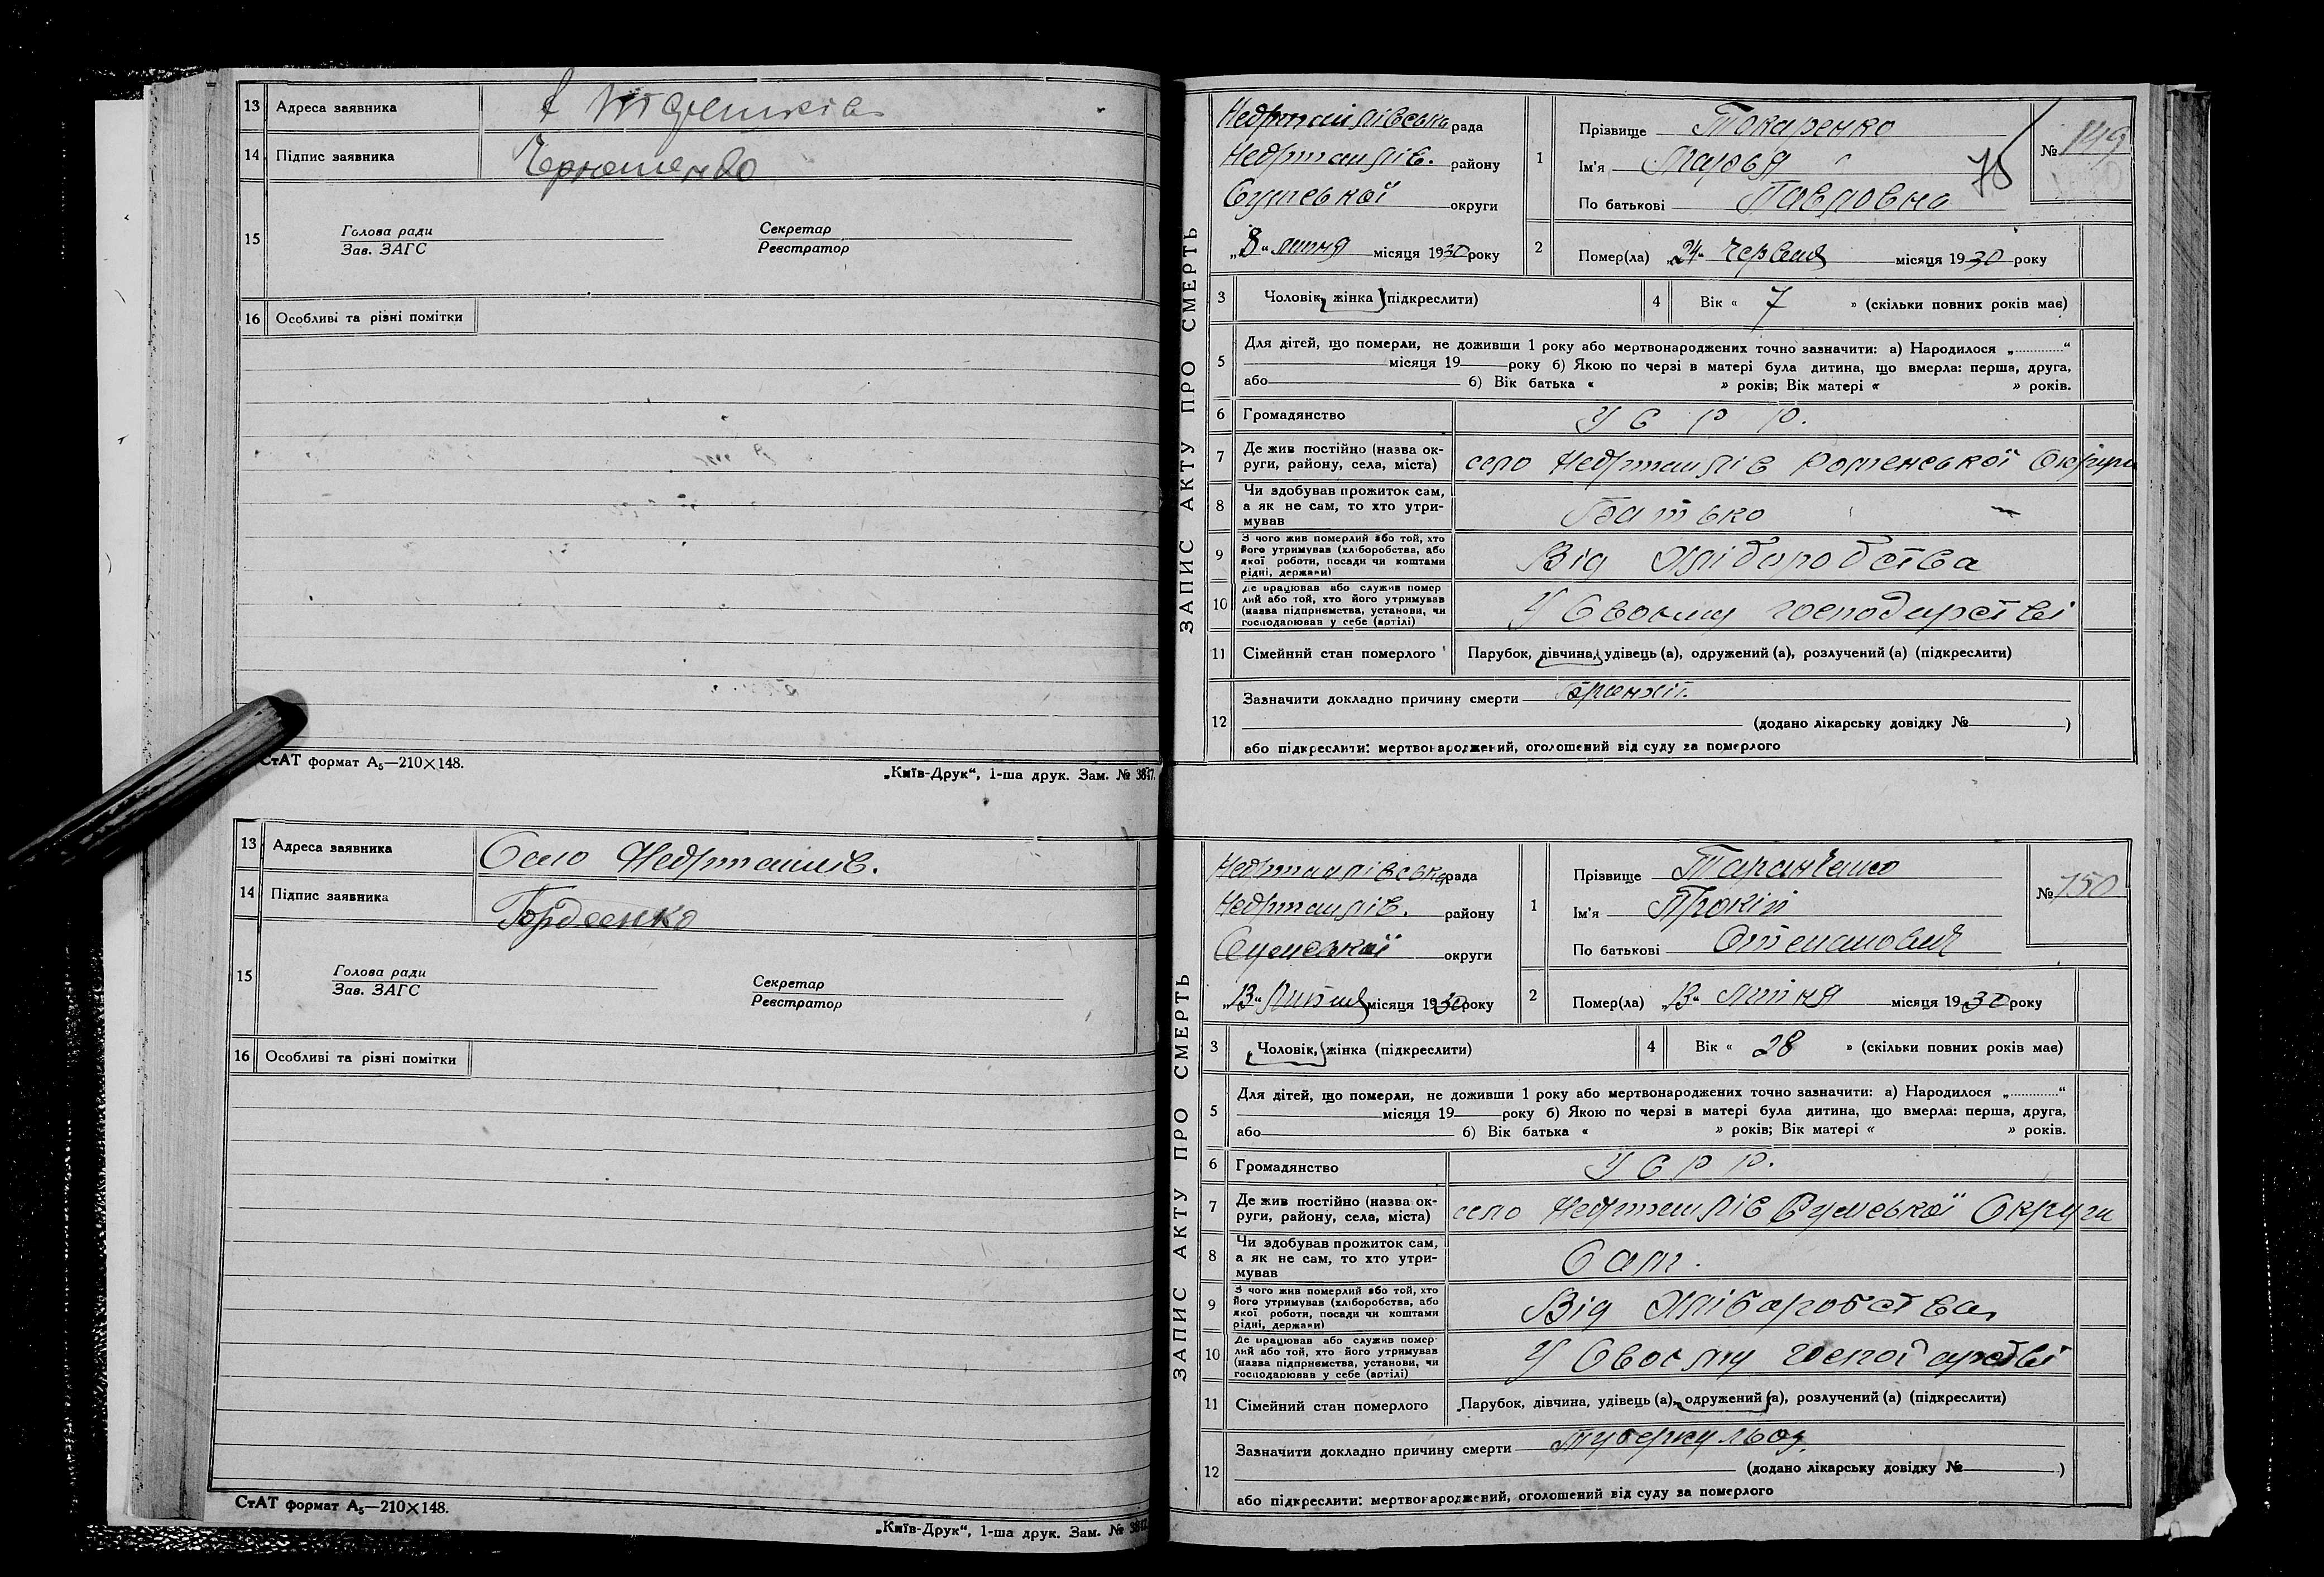 13 Адреса заявника
14 Підпис заявника
15 Голова ради Секретар
Зав. ЗАГС Реєстратор
16 Особливі та різні помітки
СтАТ формат А₅—210×148.
„Київ-Друк“, 1-ша друк. Зам. № 3847.
13 Адреса заявника Село
14 Підпис заявника Гордеенко
15 Голова ради Секретар
Зав. ЗАГС Реєстратор
16 Особливі та різні помітки
СтАТ формат А₅—210×148.
„Київ-Друк“, 1-ша друк. Зам. № 3847.
ЗАПИС АКТУ ПРО СМЕРТЬ
рада
району
Сумської округи
„8“ липня місяця 1930 року
1 Прізвище Токаренко
Ім'я Марья
По батькові Павловна
75
№ 149
2 Помер(ла) „24“ червня місяця 1930 року
3 Чоловік, жінка (підкреслити)
4 Вік « 7 » (скільки повних років має)
5 Для дітей, що померли, не доживши 1 року або мертвонароджених точно зазначити: а) Народилося „............“
місяця 19 року б) Якою по черзі в матері була дитина, що вмерла: перша, друга,
або б) Вік батька « » років; Вік матері « » років.
6 Громадянство У С Р Р.
7 Де жив постійно (назва ок-
руги, району, села, міста) село Роменської Округи
8 Чи здобував прожиток сам,
а як не сам, то хто утри-
мував Батько
9 З чого жив померлий або той, хто
його утримував (хліборобства, або
якої роботи, посади чи коштами
рідні, держави) Від Хліборобства
10 Де працював або служив помер
лий або той, хто його утримував
(назва підприємства, установи, чи
господарював у себе (артілі) У Своєму господарстві
11 Сімейний стан померлого Парубок, дівчина, удівець (а), одружений (а), розлучений (а) (підкреслити)
12 Зазначити докладно причину смерти Бронхіт.
(додано лікарську довідку № )
або підкреслити: мертвонароджений, оголошений від суду за померлого
ЗАПИС АКТУ ПРО СМЕРТЬ
рада
району
Сумської округи
„13“ Липня місяця 1930 року
1 Прізвище
Ім'я Прокіп
По батькові Степанович
№ 150
2 Помер(ла) „13“ липня місяця 1930 року
3 Чоловік, жінка (підкреслити)
4 Вік « 28 » (скільки повних років має)
5 Для дітей, що померли, не доживши 1 року або мертвонароджених точно зазначити: а) Народилося „............“
місяця 19 року б) Якою по черзі в матері була дитина, що вмерла: перша, друга,
або б) Вік батька « » років; Вік матері « » років.
6 Громадянство У С Р Р.
7 Де жив постійно (назва ок-
руги, району, села, міста) село Сумської Округи
8 Чи здобував прожиток сам,
а як не сам, то хто утри-
мував Сам.
9 З чого жив померлий або той, хто
його утримував (хліборобства, або
якої роботи, посади чи коштами
рідні, держави) Від Хліборобства
10 Де працював або служив помер-
лий або той, хто його утримував
(назва підприємства, установи, чи
господарював у себе (артілі) У Своєму господарстві
11 Сімейний стан померлого Парубок, дівчина, удівець (а), одружений (а), розлучений (а) (підкреслити)
12 Зазначити докладно причину смерти Туберкульоз
(додано лікарську довідку № )
або підкреслити: мертвонароджений, оголошений від суду за померлого